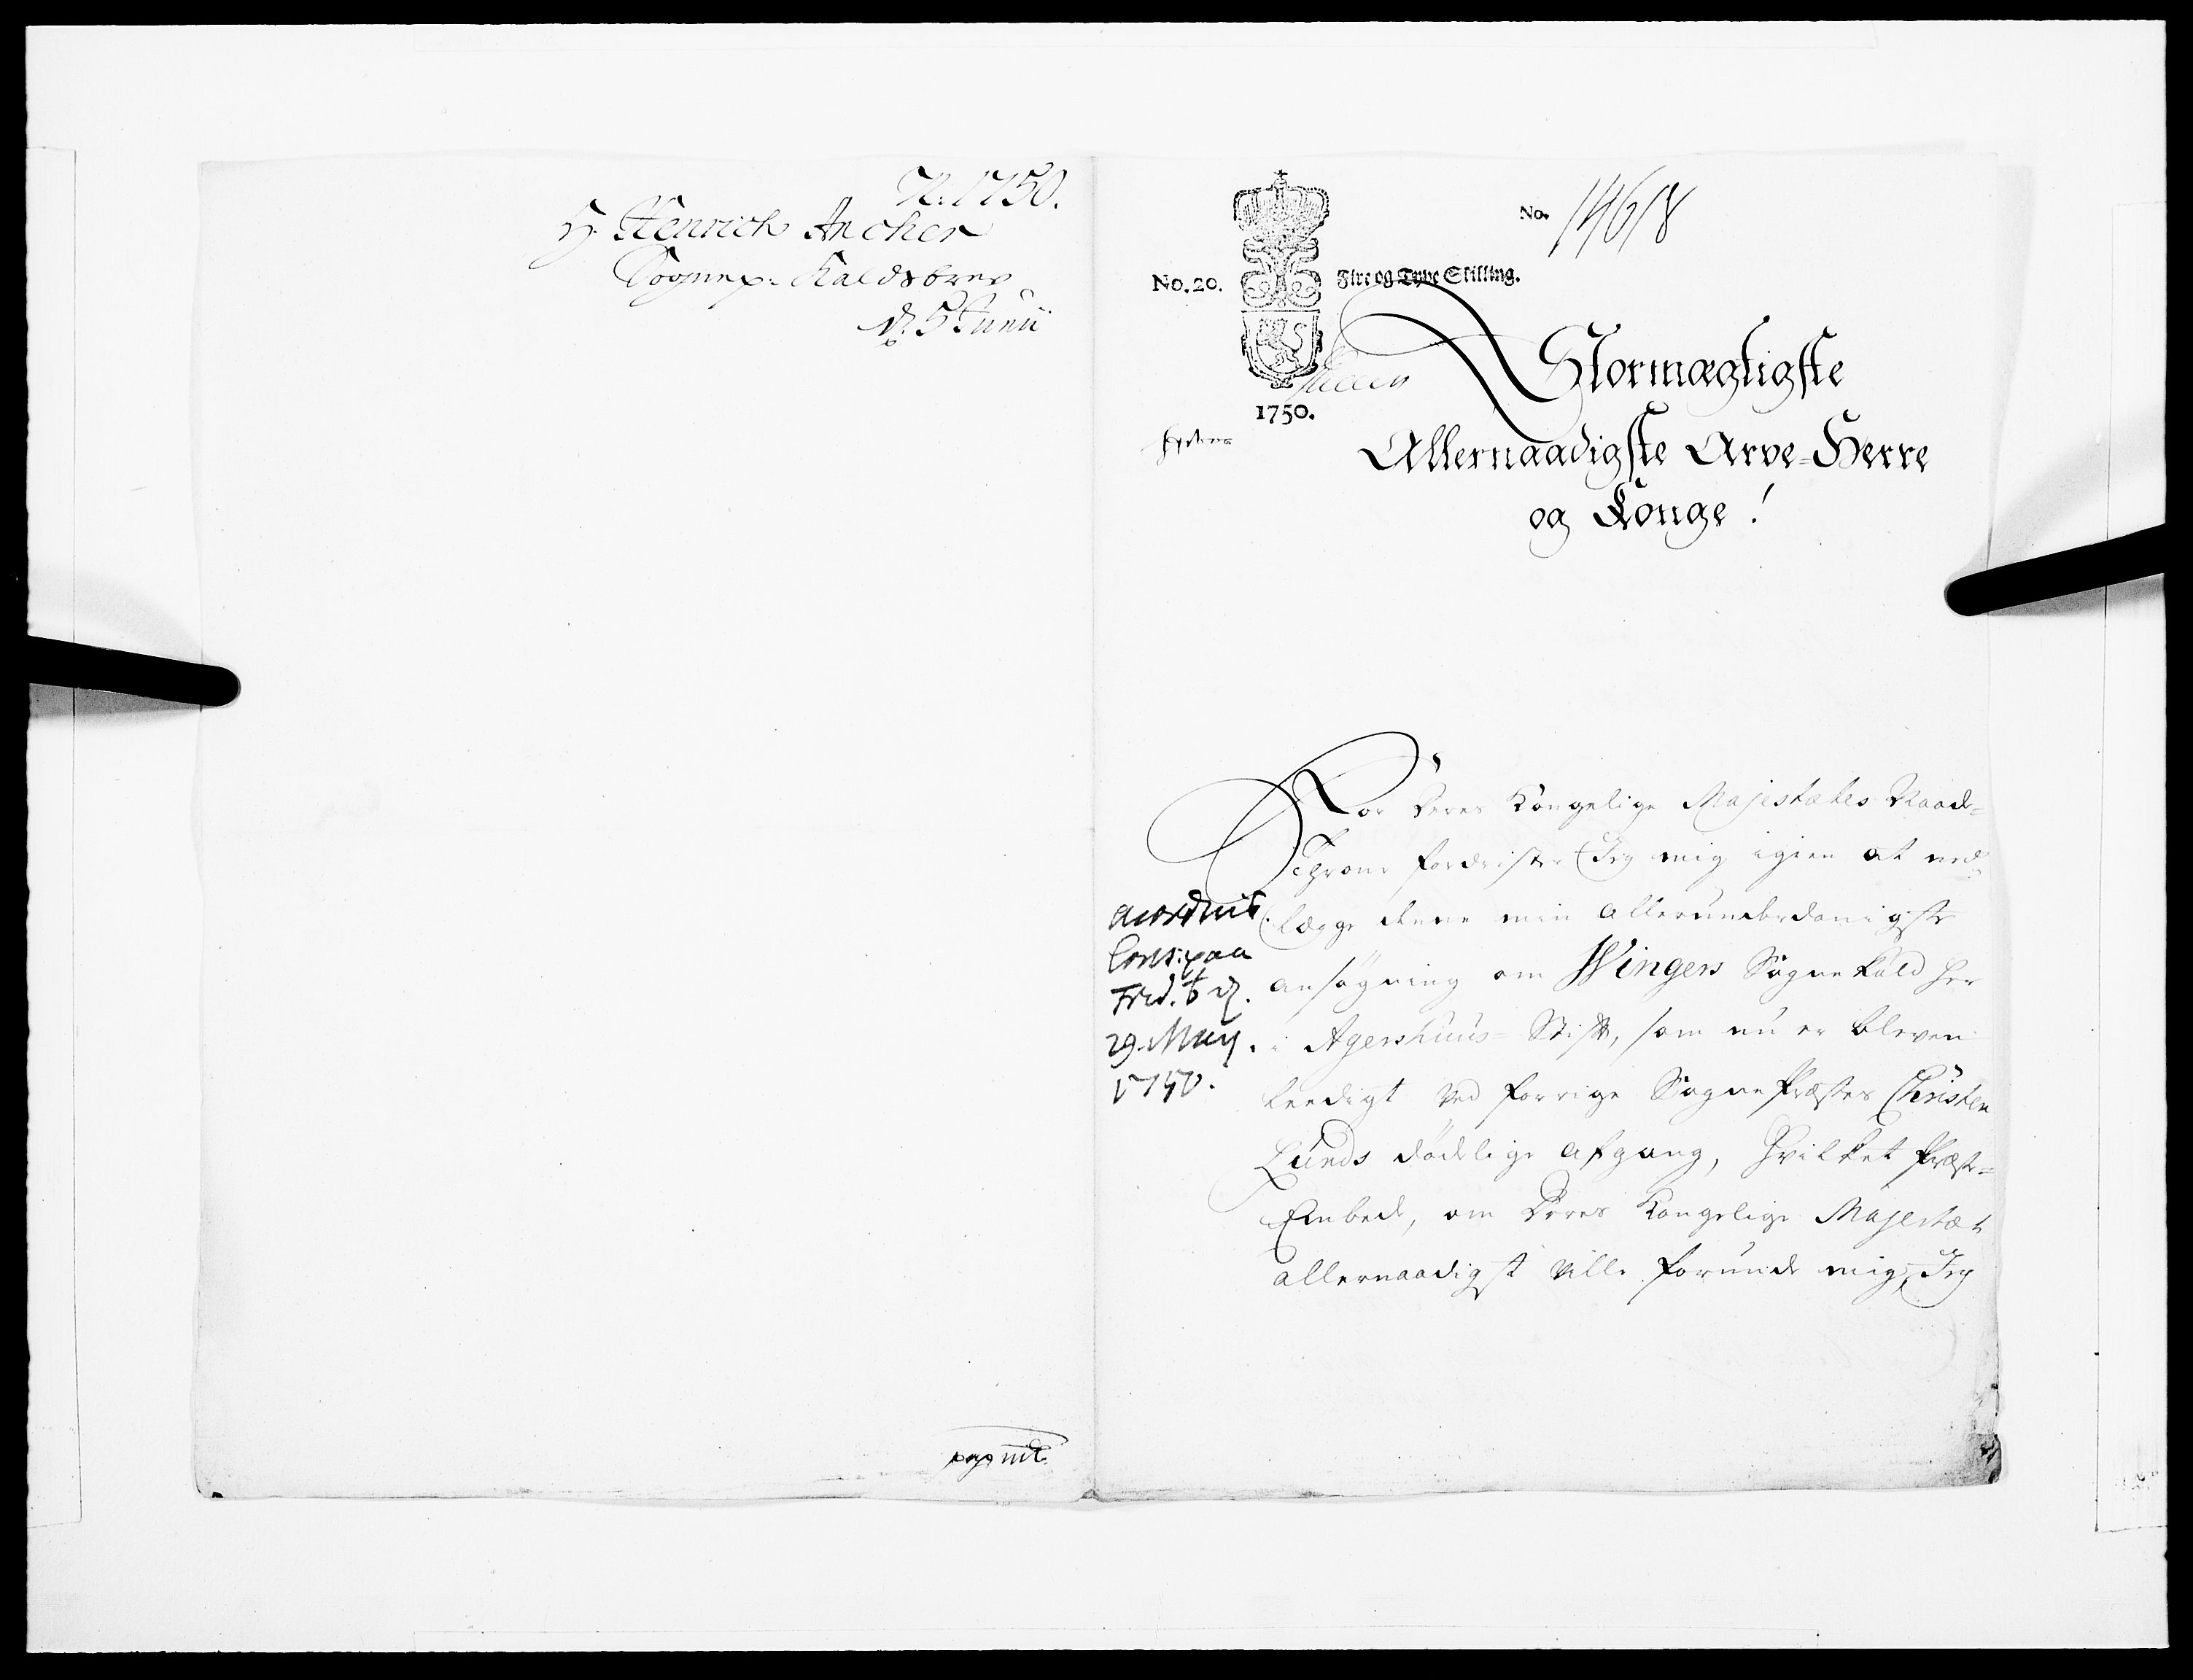 N. 1750.
H. Henrich Ancher
Sognep: Kaldsbrev
d. 5 Junii
No. 14618
No. 20.
Fire og Tyve Skilling.
1750.
Stormægtigste
Allernaadigste Arve-Herre
og Konge!
For Deres Kongelige Majestætes Naade-
Throne fordrister Jeg mig igien at ned-
lægge denne min allerunderdanigste
ansøgning om Wingers Sognekald her
i Agershuus-Stift, som nu er bleven
leedigt ved forrige Sognepræstes Christen
Lunds dødelige afgang, hvilket Præste-
Embede, om Deres Kongelige Majestæt
allernaadigst ville forunde mig, Jeg
Consi: paa
Fred. b d.
29. Maij.
1750.